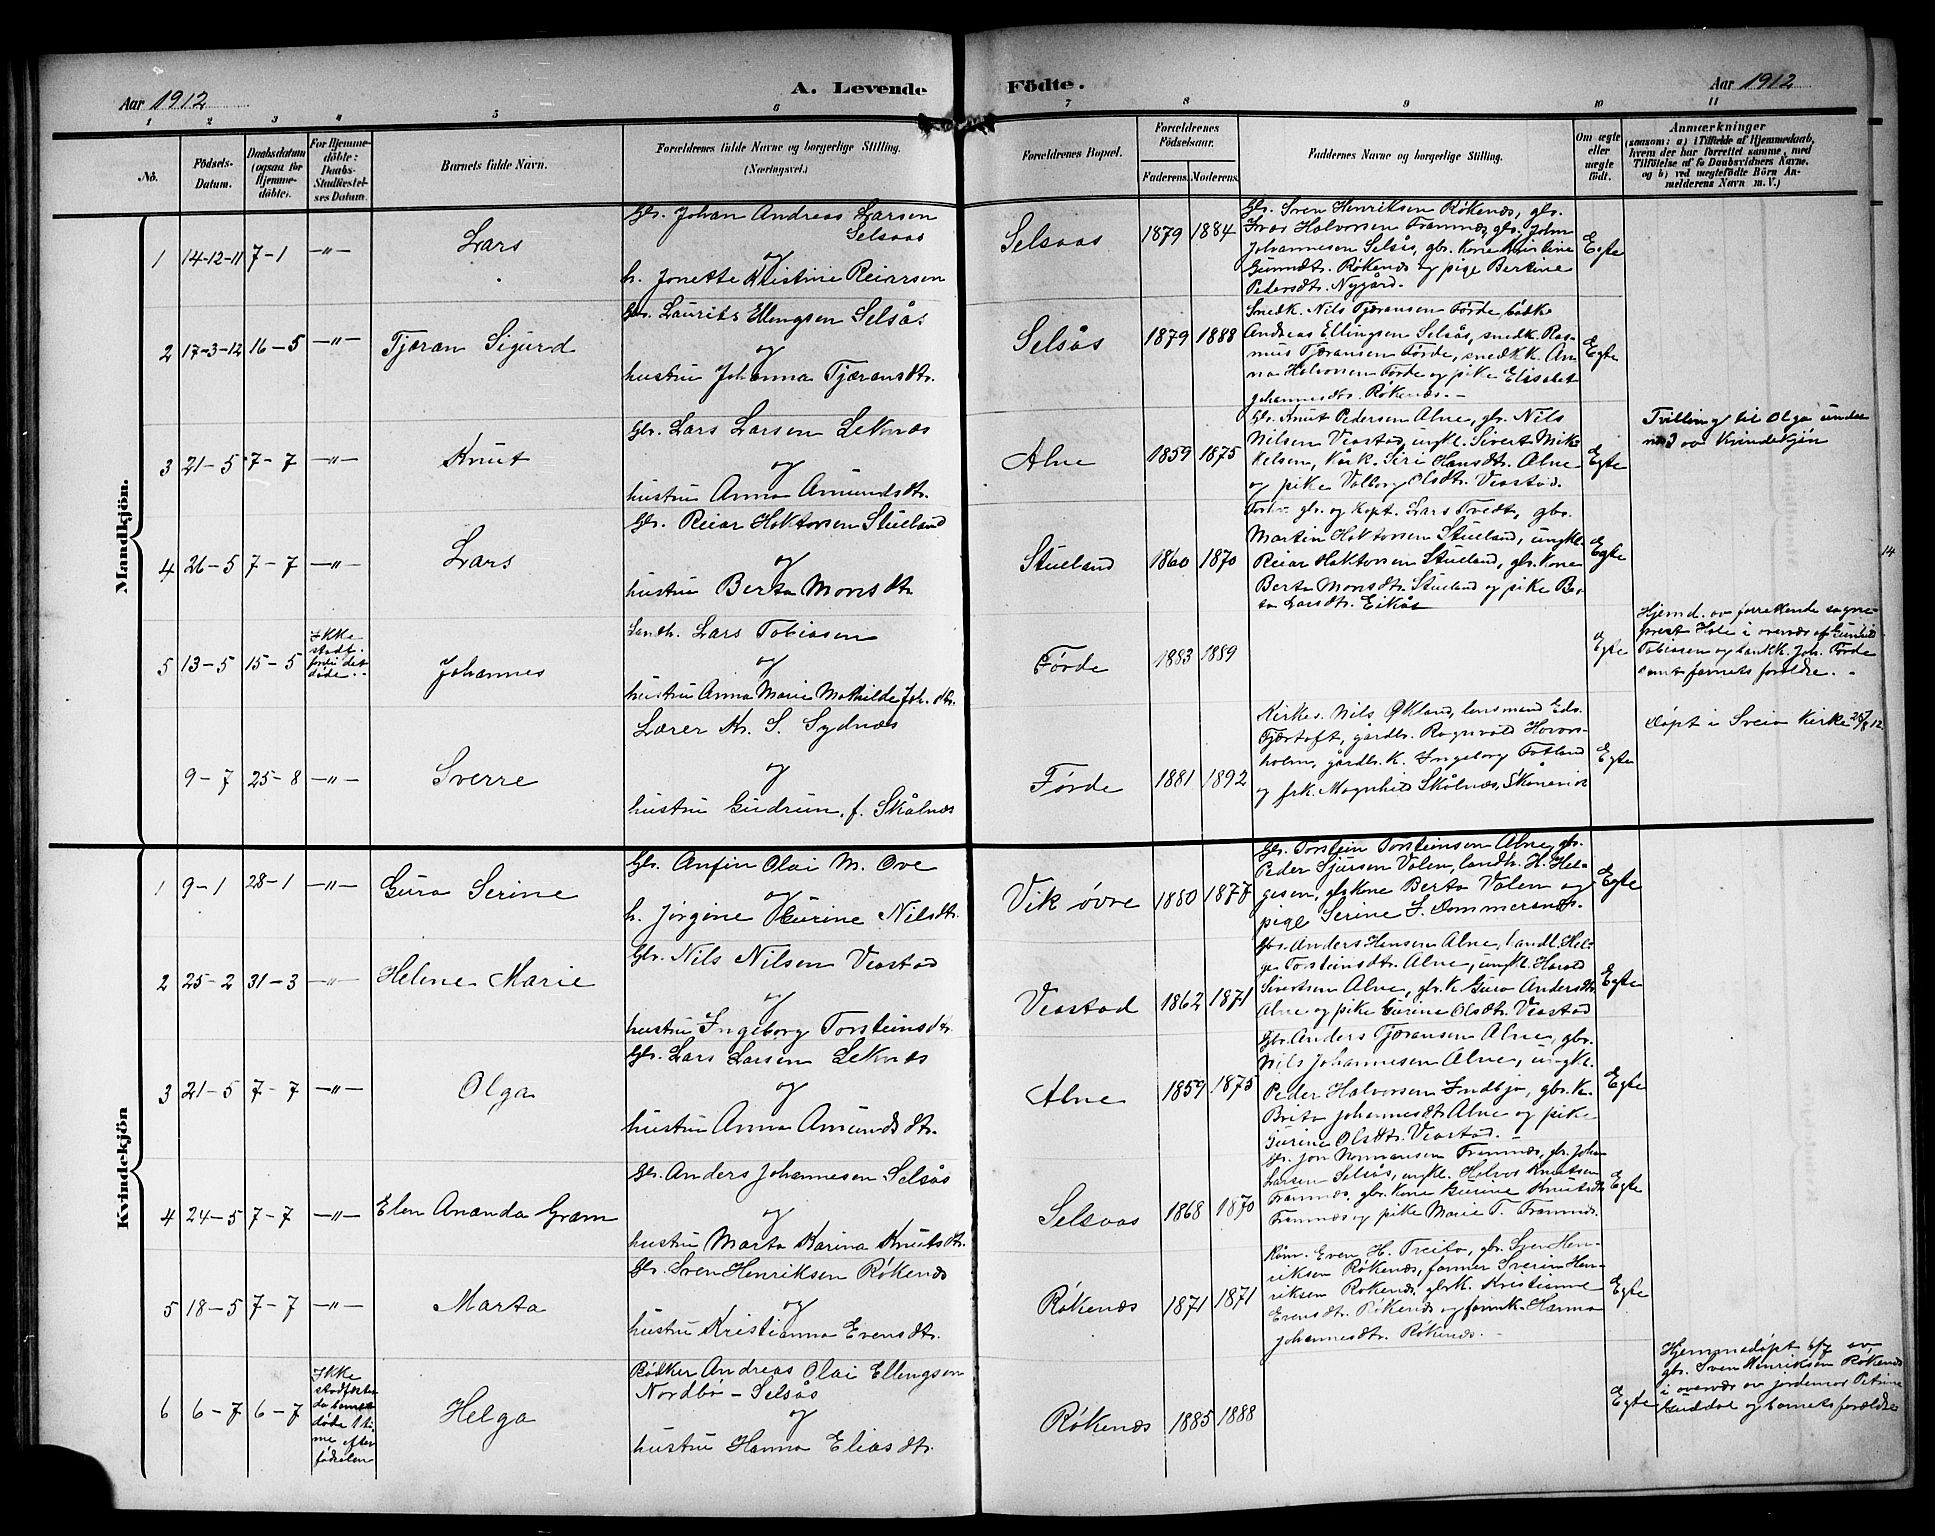 Aar 1912
A. Levende
Födte.
Aar 1912
1 2 3 4 5 6 7 8 9 10 11
No.
Födsels-
Datum.
Daabsdatum
(ogsaa for
Hjemme-
döbte).
For Hjemme-
döbte:
Daabs-
Stadfæstel-
ses Datum.
Barnets fulde Navn.
Forældrenes fulde Navne og borgerlige Stilling.
(Næringsvei.)
Forældrenes Bopæl.
Forældrenes
Födselsaar.
Faderens. Moderens.
Faddernes Navne og borgerlige Stilling.
Om ægte
eller
uægte
födt.
Anmærkninger
(saasom: a) i Tilfælde af Hjemmedaab,
hvem der har forrettet samme, med
Tilföielse af to Daabsvidners Navne,
og b) ved uægtefödte Börn An-
melderens Navn m. V.)
Mandkjön.
1 14-12-11 7-1 -"- Lars
Gbr. Johan Andreas Larsen
Selsaas
og
h. Jonette Kristine Reiarsen
Selsaas 1879 1884
Gbr. Sven Henriksen Røkenes, gbr.
Ivar Halvorsen Framnæs, gbr. Johan
Johannesen Selsås, gbr. kone Kristine
Gunndtr. Røkenes og pige Bertine
Pedersdtr. Nygård.
Egte
2 17-3-12 16-5 -"- Tjæran Sigurd
Gbr. Laurits Ellingsen Selsås
og
hustru Johanna Tjæransdtr.
Selsås 1879 1888
Snedk. Nils Tjæransen Førde, bødk.
Andreas Ellingsen Selsås, snedk. Ras-
mus Tjæransen Førde, snedkk. An-
na Halvorsen Førde og pike Elisabet
Johannesdtr. Røkenæs.-
Egte
3 21-5 7-7 -"- Knut
Gbr. Lars Larsen Leknæs
og
hustru Anna Amundsdtr.
Alne 1859 1875
Gbr. Knut Pedersen Alne, gbr. Nils
Nilsen Veastad, ungk. Sivert Mik-
kelsen, kårk. Siri Hansdtr. Alne
og pike Valborg Olsdtr. Veastad.
Egte
Tvilling til Olga under
no 3 av Kvindekjøn
4 26-5 7-7 -"- Lars
Gbr. Reiar Hoktorsen Stueland
og
hustru Berta Monsdtr
Stueland 1860 1870
gbr. og kapt. Lars Tvedt, gbr.
Martin Hoktorsen Stueland, ungk.
Reiar Hoktorsen Stueland, gbr. kone
Berta Monsdtr. Stueland og pike Ber-
ta Larsdtr. Eikås
Egte
5 13-5 15-5
Ikke
stadf.
fordi det
døde.
Johannes
Landh. Lars Tobiasen
og
hustru Anna Marie Mathilde Joh. dtr.
Førde 1883 1889
Egte
Hjemd. av forrettende sogne-
prest Hole i overvær af Gunhild
Tobiasen og Joh. Førde
samt barnets foreldre.
9-7 25-8 -"- Sverre
Lærer Kr. S. Sydnæs
og
hustru Gudrun, f. Skålnæs
Førde 1881 1892
Kirkes. Nils Økland, lensmand Edv.
Fjærtoft, gårdbr. Ragnvald Hovors-
holm, gårdbr. k. Ingeborg Fatland
og frk. Magnhild Skålnæs, Skånevik
Egte
Døpt i Sveio kirke 25/8 12
Kvindekjön
1 9-1 28-1 -"- Guro Serine
Gbr. Anfin Olai M. Ove
og
h. Jørgine Gurine Nilsdtr.
Vik øvre 1880 1877
Gbr. Torstein Torsteinsen Alne, gbr.
Peder Sjursen Valen, landh. H. Hel-
gesen, gbrkone Berta Valen og
pige Serine S. Dommersnes.
Egte
2 25-2 31-3 -"- Helene Marie
Gbr. Nils Nilsen Veastad
og
hustru Ingeborg Torsteinsdtr.
Veastad 1862 1871
Gbr. Anders Hansen Alne, landh. Hel-
ge Torsteinsdtr. Alne, ungk. Harald
Sivertsen Alne, gbr. k. Guro Andersdtr.
Alne og pike Gurine Olsdtr. Veastad
Egte
3 21-5 7-7 -"- Olga
Gbr. Lars Larsen Leknæs
og
hustru Anna Amundsdtr.
Alne 1859 1875
Gbr. Anders Tjæransen Alne, gbr.
Nils Johannesen Alne, ungk.
Peder Halvorsen Indbjo, gbr. k.
Brita Johannesdtr. Alne og pike
Gurine Olsdtr. Veastad.
Egte
4 24-5 7-7 -"- Elen Ananda Gram
Gbr. Anders Johannesen Selsås
og
hustru Marta Karina Knutsdtr.
Selsaas 1868 1870
Gbr. Jon Framnæs, gbr. Johan
Larsen Selsås, ungk. Halvor Knutsen
Framnæs, gbr. kone Gurine Knutsdtr.
Framnæs og pike Marie T. Framnæs.
Egte
5 18-5 7-7 -"- Marta
Gbr. Sven Henriksen Røkenæs
og
hustru Kristianna Evensdtr.
Røkenæs 1871 1871
Even H. Treita, gbr. Sven Hen-
riksen Røkenæs, farmer Sverin Hen-
riksen Røkenæs, gbrk. Kristianne
Evensdtr. Røkenæs og farmk. Hanna
Johannesdtr. Røkenæs.-
Egte
6 6-7 6-7
Ikke
stadfæstet
da barnet
døde 1 ti-
me efter
fødselen
Helga
Bødker Andreas Olai Ellengsen
Nordbø - Selsås
og
hustru Hanna Eliasdtr.
Røkenæs 1885 1888
Egte
Hjemmedøpt 6/7 av
gbr. Sven Henriksen Røkenæs
i overvær av jordemor Petrine
Guddal og barnets forældre
14